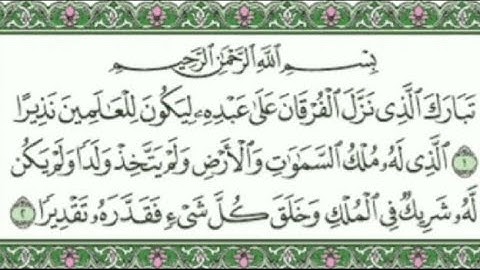 بِسْمِ اللَّهِ الرَّحْمَٰنِ الرَّحِيمِ
تَبَارَكَ الَّذِي نَزَّلَ الْفُرْقَانَ عَلَىٰ عَبْدِهِۦ لِيَكُونَ لِلْعَالَمِينَ نَذِيرًا
١ الَّذِي لَهُۥ مُلْكُ السَّمَاوَاتِ وَالْأَرْضِ وَلَمْ يَتَّخِذْ وَلَدًا وَلَمْ يَكُن
لَّهُۥ شَرِيكٌ فِي الْمُلْكِ وَخَلَقَ كُلَّ شَيْءٍ فَقَدَّرَهُۥ تَقْدِيرًا ٢